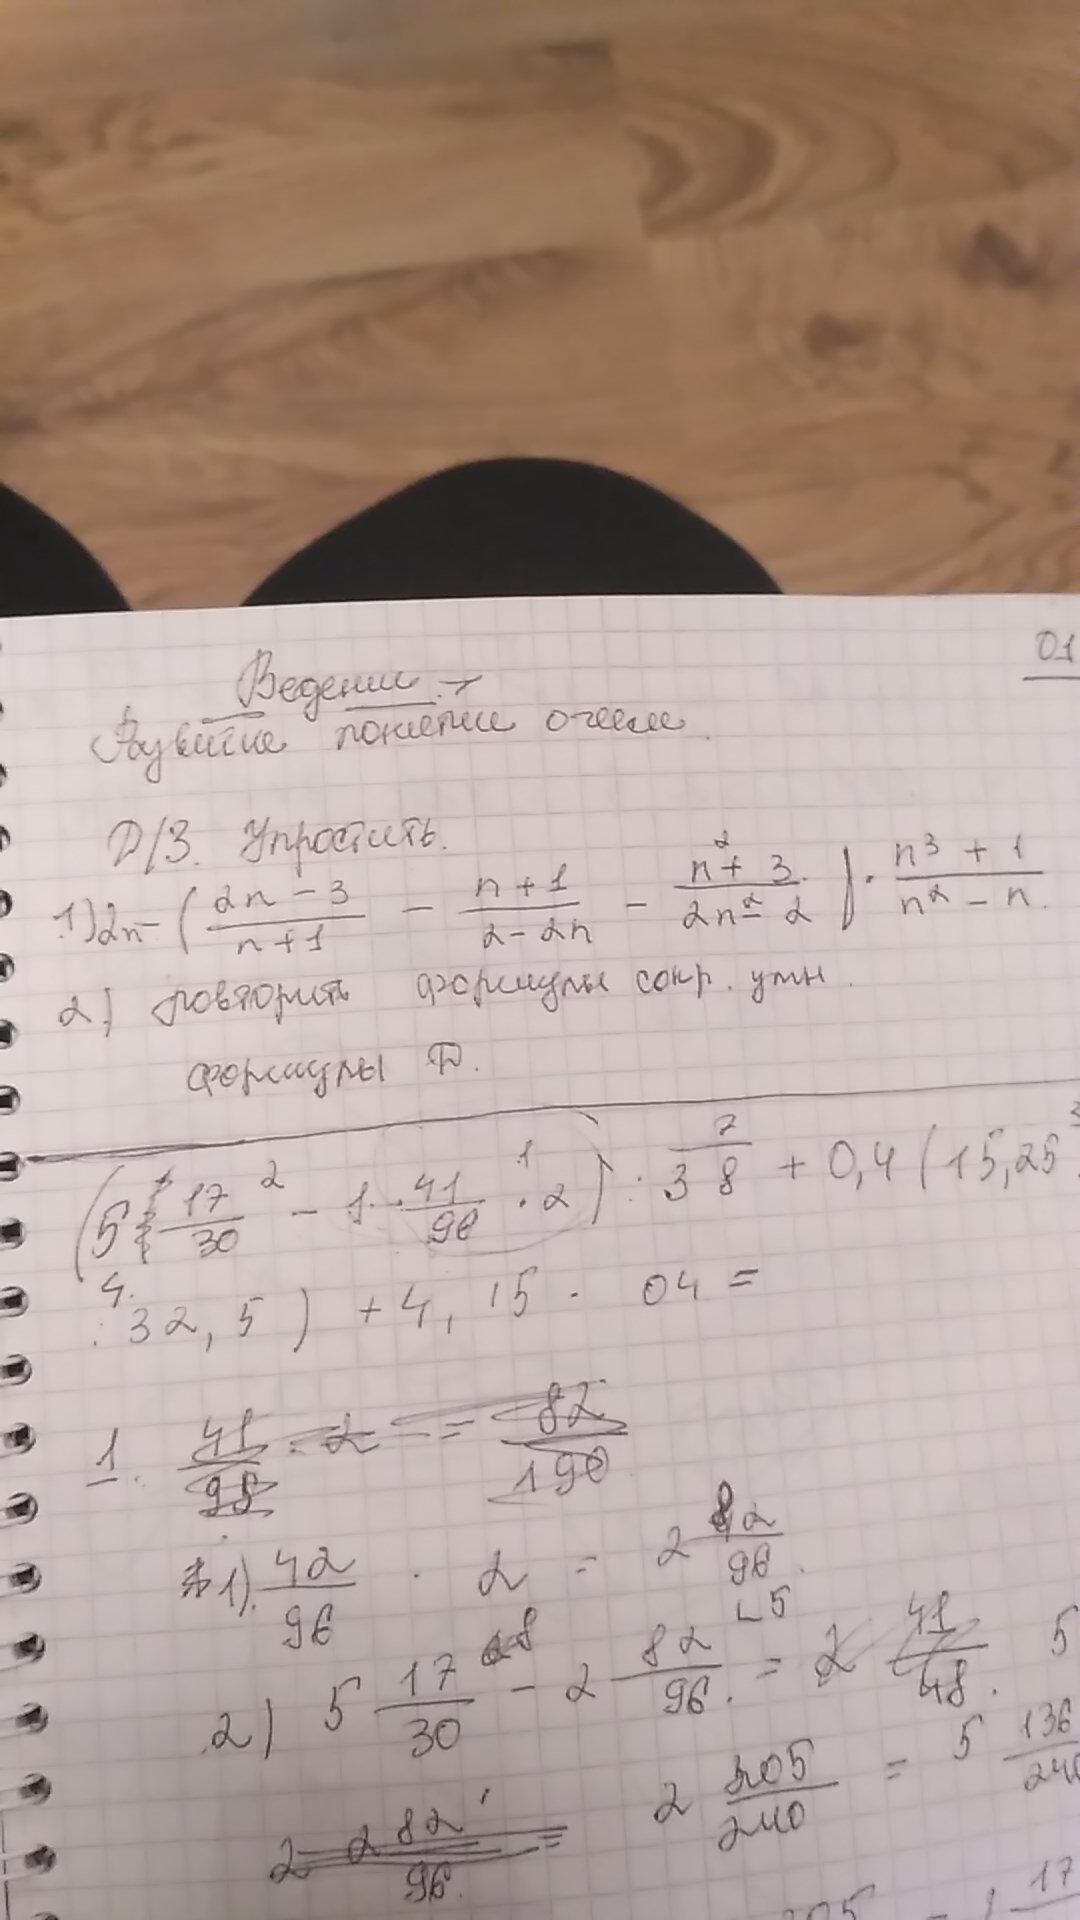 01
Ведении
понятие о числе
Д/З. Упростить.
1) 2n - ( (2n - 3)/(n + 1) - (n + 1)/(2 - 2n) - (n² + 3)/(2n² - 2) ) · (n³ + 1)/(n² - n).
2) повторить формулы сокр. умн.
формулы D.
(5 17/30 - 1 41/96 · 2) : 3 7/8 + 0,4 (15,25
: 32,5) + 4,15 · 04 =
1. 41/98 · 2 = 82/190
1) 42/96 · 2 = 2 82/96
2) 5 17/30 - 2 82/96 = 2 41/48 5
2 2 82/96 = 2 205/240 = 5 136/240
205 17